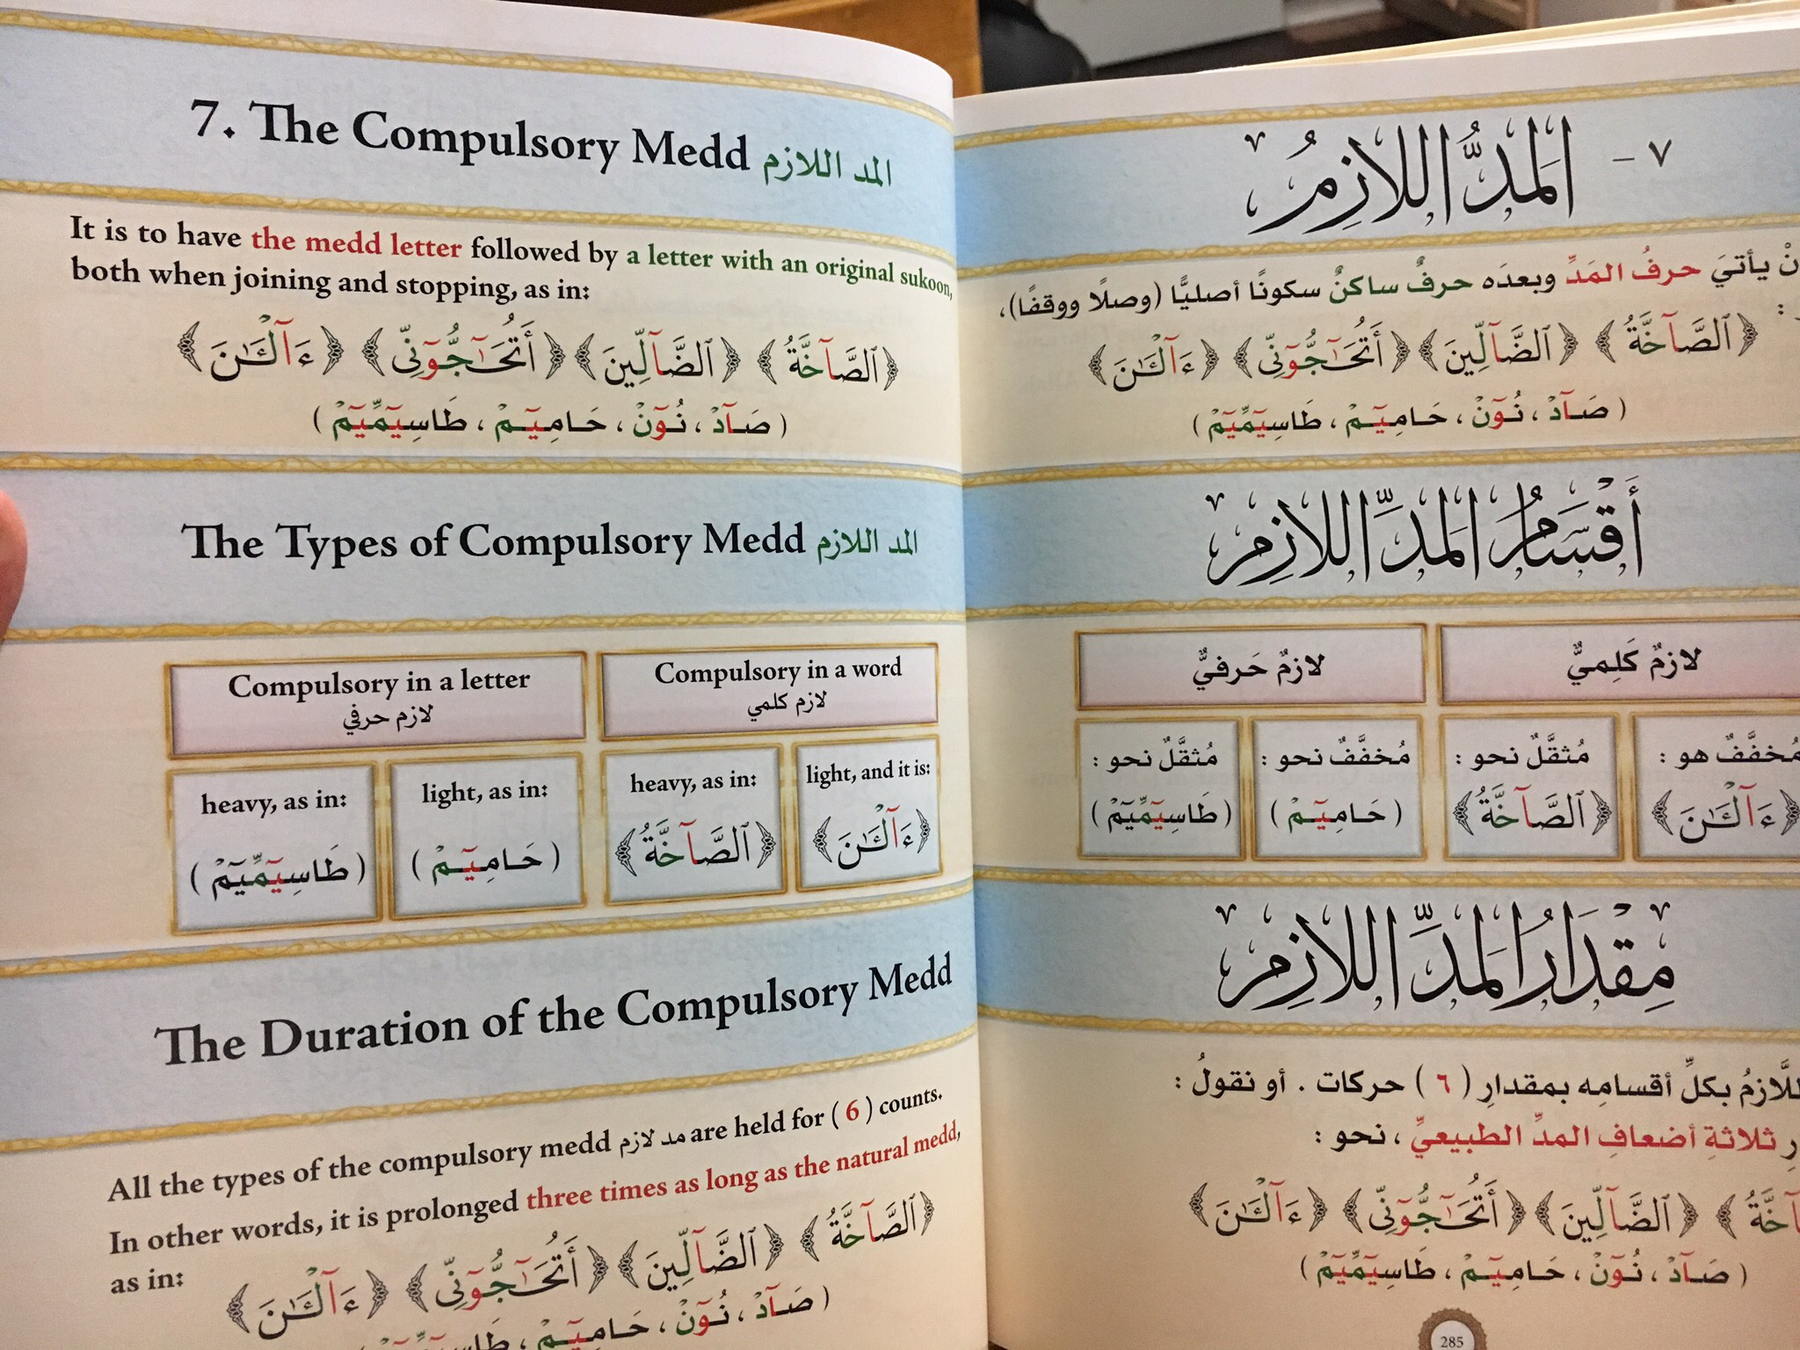 7. The Compulsory Medd المد اللازم
It is to have the medd letter followed by a letter with an original sukoon,
both when joining and stopping, as in:
﴿ٱلصَّآخَّةُ﴾ ﴿ٱلضَّآلِّينَ﴾ ﴿أَتُحَـٰٓجُّوٓنِّى﴾ ﴿ءَآلْـَٔـٰنَ﴾
( صَـآدْ ، نُـوٓنْ ، حَـامِـيٓـمْ ، طَاسِيٓمِّيٓمْ )
The Types of Compulsory Medd المد اللازم
Compulsory in a letter
لازم حرفي
Compulsory in a word
لازم كلمي
heavy, as in:
( طَاسِيٓمِّيٓمْ )
light, as in:
( حَـامِـيٓـمْ )
heavy, as in:
﴿ٱلصَّآخَّةُ﴾
light, and it is:
﴿ءَآلْـَٔـٰنَ﴾
The Duration of the Compulsory Medd
All the types of the compulsory medd مد لازم are held for ( 6 ) counts.
In other words, it is prolonged three times as long as the natural medd,
as in: ﴿ٱلصَّآخَّةُ﴾ ﴿ٱلضَّآلِّينَ﴾ ﴿أَتُحَـٰٓجُّوٓنِّى﴾ ﴿ءَآلْـَٔـٰنَ﴾
صَـآدْ ، نُـوٓنْ ، حَـامِـيٓـمْ ، طَاسِيٓمِّيٓمْ )
٧ - المَدُّ اللازِمُ
يأتيَ حرفُ المَدِّ وبعدَه حرفٌ ساكنٌ سكونًا أصليًّا (وصلًا ووقفًا)،
:
﴿ٱلصَّآخَّةُ﴾ ﴿ٱلضَّآلِّينَ﴾ ﴿أَتُحَـٰٓجُّوٓنِّى﴾ ﴿ءَآلْـَٔـٰنَ﴾
( صَـآدْ ، نُـوٓنْ ، حَـامِـيٓـمْ ، طَاسِيٓمِّيٓمْ )
أَقْسَامُ المَدِّ اللازِمِ
لازمٌ كَلِميٌّ
لازمٌ حَرفيٌّ
مُخفَّفٌ هو :
﴿ءَآلْـَٔـٰنَ﴾
مُثقَّلٌ نحو :
﴿ٱلصَّآخَّةُ﴾
مُخفَّفٌ نحو :
( حَـامِـيٓـمْ )
مُثقَّلٌ نحو :
( طَاسِيٓمِّيٓمْ )
مِقْدَارُ المَدِّ اللازِمِ
اللَّازمُ بكلِّ أقسامِه بمقدارِ ( ٦ ) حركات . أو نقولُ :
ثلاثةِ أضعافِ المدِّ الطبيعيِّ ، نحو :
﴿ٱلضَّآلِّينَ﴾ ﴿أَتُحَـٰٓجُّوٓنِّى﴾ ﴿ءَآلْـَٔـٰنَ﴾
( صَـآدْ ، نُـوٓنْ ، حَـامِـيٓـمْ ، طَاسِيٓمِّيٓمْ )
285